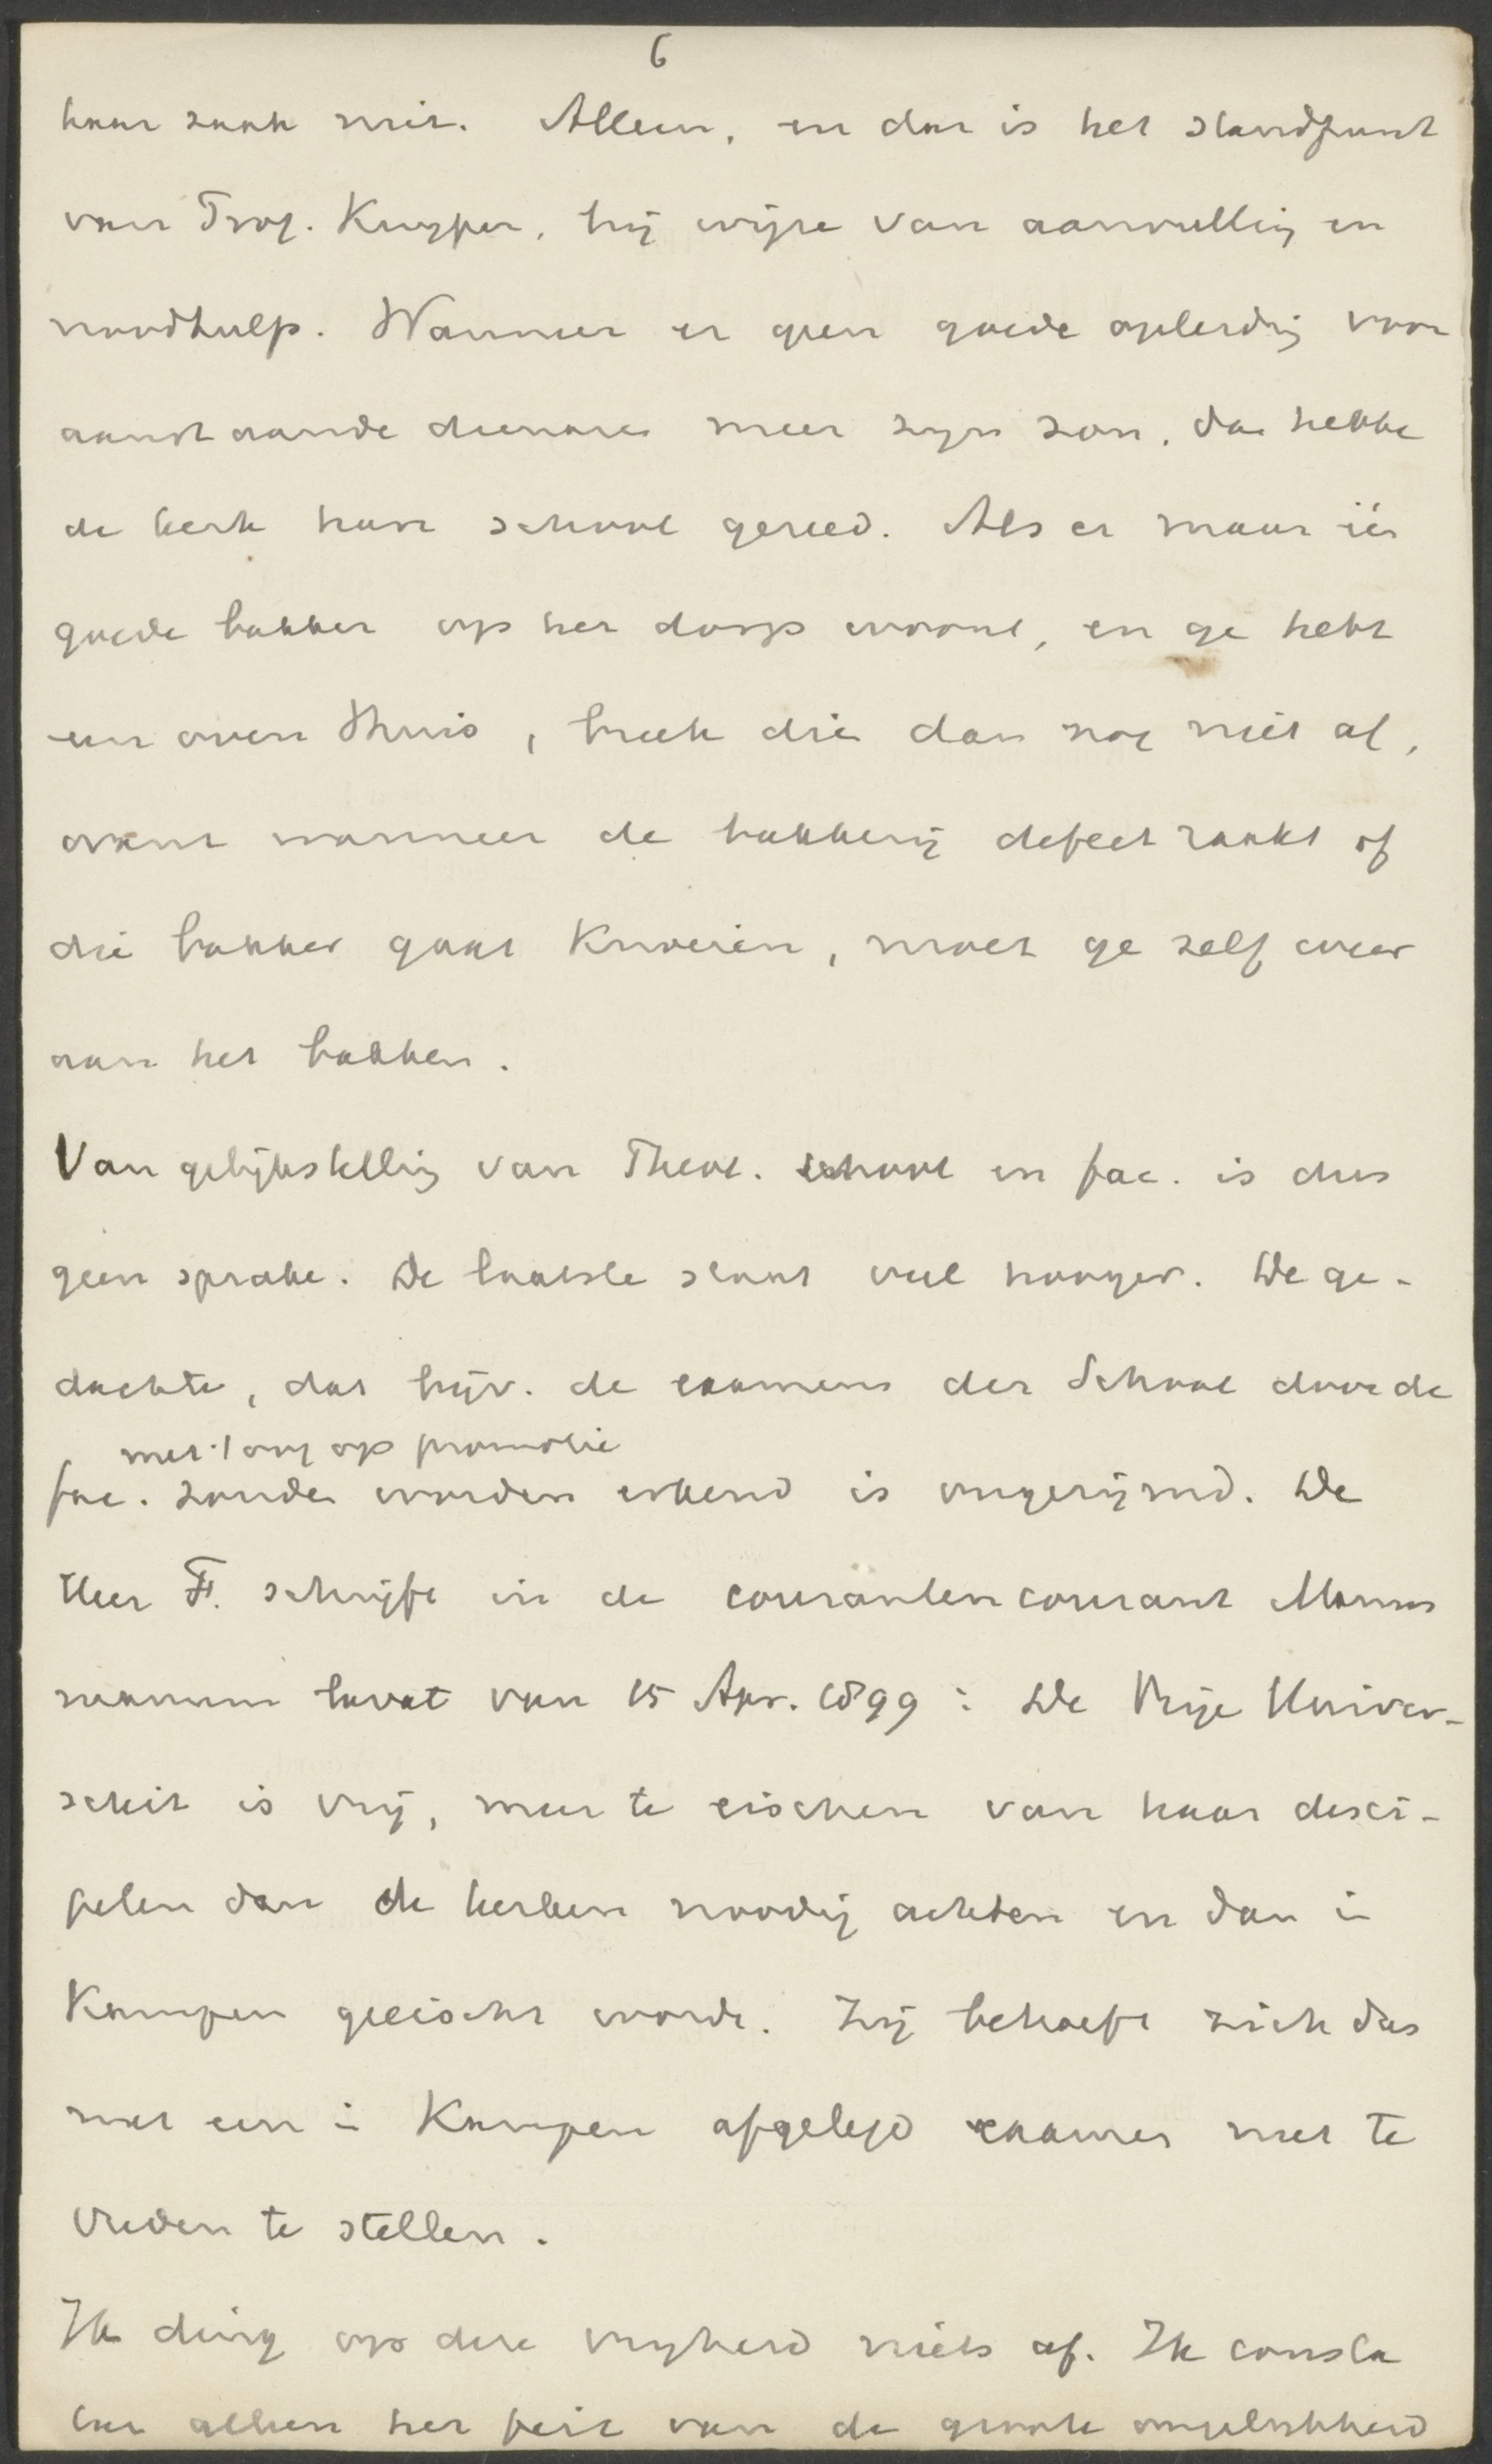 6
haar zaak niet. Alleen, en dat is het standpunt
van Prof. Kuyper, bij wijze van aanvulling en
noodhulp. Wanneer er geen goede opleiding voor
aanstaande dienaren meer zyn zou, dan hebbe
de kerk haar school gereed. Als er maar één
goede bakker op het dorp woont, en ge hebt
een oven thuis, breek die dan nog niet af,
want wanneer de bakkerij defect raakt of
die bakker gaat knoeien, moet ge zelf weer
aan het bakken.
Van gelijkstelling van Theol. school en fac. is dus
geen sprake. De laatste staat veel hooger. De ge-
dachte, dat bijv. de examens der School door de
met 't oog op promotie
fac. zouden worden erkend is ongerijmd. De
Heer F. schrijft in de courantencourant Manus
manum lavat van 15 Apr. 1899: De Vrije Univer-
siteit is vrij, meer te eischen van haar disci-
pelen dan de kerken noodig achten en dan in
Kampen geeischt wordt. Zij behoeft zich dus
met een in Kampen afgelegd examen niet te
vreden te stellen.
Ik ding op deze vryheid niets af. Ik consta
teer alleen het feit van de groote ongelijkheid